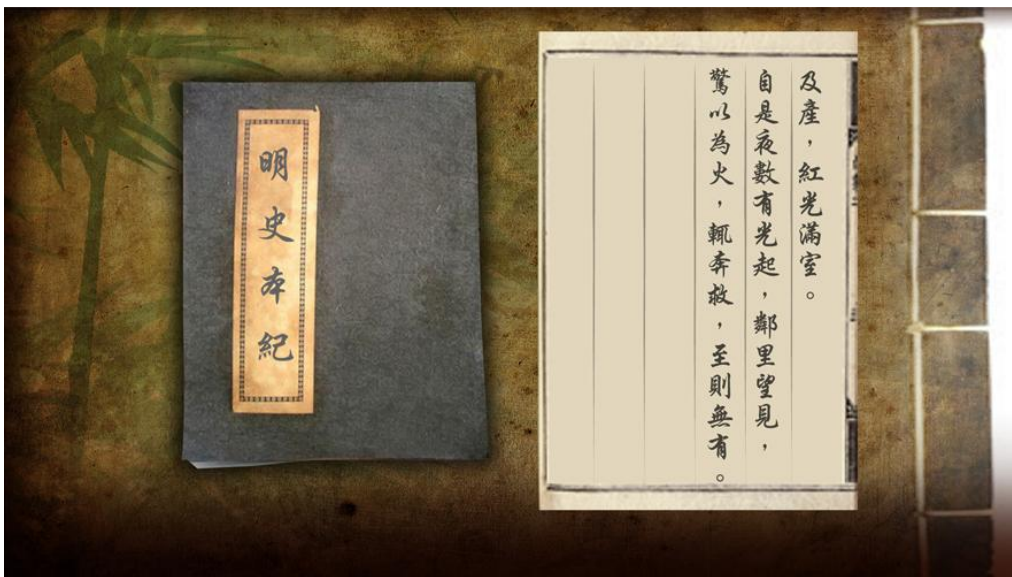 明史本紀
及產，紅光滿室。
自是夜數有光起，鄰里望見，
驚以為火，輒奔救，至則無有。